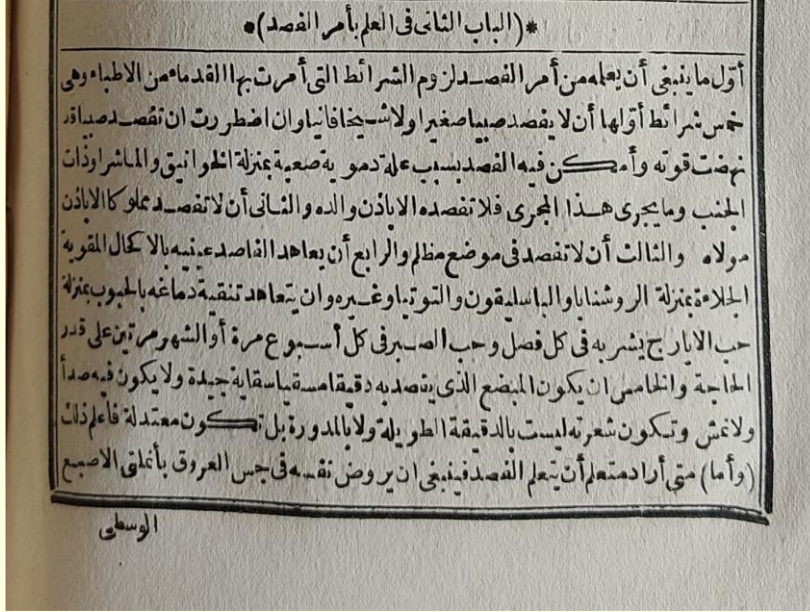 *(الباب الثانى فى العلم بأمر الفصد)*
أوّل ما ينبغى أن يعلمه من أمر الفصد لزوم الشرائط التى أمرت بها القدماء من الاطباء وهى
خمس شرائط أوّلها أن لا يفصد صبيا صغيرا ولا شيخا فانيا وان اضطررت ان تفصد صبيا قد
نهضت قوته وأمكن فيه الفصد بسبب علة دموية صعبة بمنزلة الخوانيق والماشرا وذات
الجنب وما يجرى هذا المجرى فلا تفصده الا باذن والده والثانى أن لا تفصد مملوكا الا باذن
مولاه والثالث أن لا تفصد فى موضع مظلم والرابع أن يعاهد الفاصد عينيه بالاكحال المقوية
الجلاءة بمنزلة الروشنايا والباسليقون والتوتيا وغيره وان يتعاهد تنقية دماغه بالحبوب بمنزلة
حب الايارج يشربه فى كل فصل وحب الصبر فى كل أسبوع مرة أو الشهر مرتين على قدر
الحاجة والخامس ان يكون المبضع الذى يفصد به دقيقا مسقيا سقاية جيدة ولا يكون فيه صدأ
ولا نمش وتكون شعرته ليست بالدقيقة الطويلة ولا بالمدورة بل تكون معتدلة فاعلم ذلك
(وأما) متى أراد متعلم أن يتعلم الفصد فينبغى ان يروض نفسه فى جس العروق بأنملتى الاصبع
الوسطى